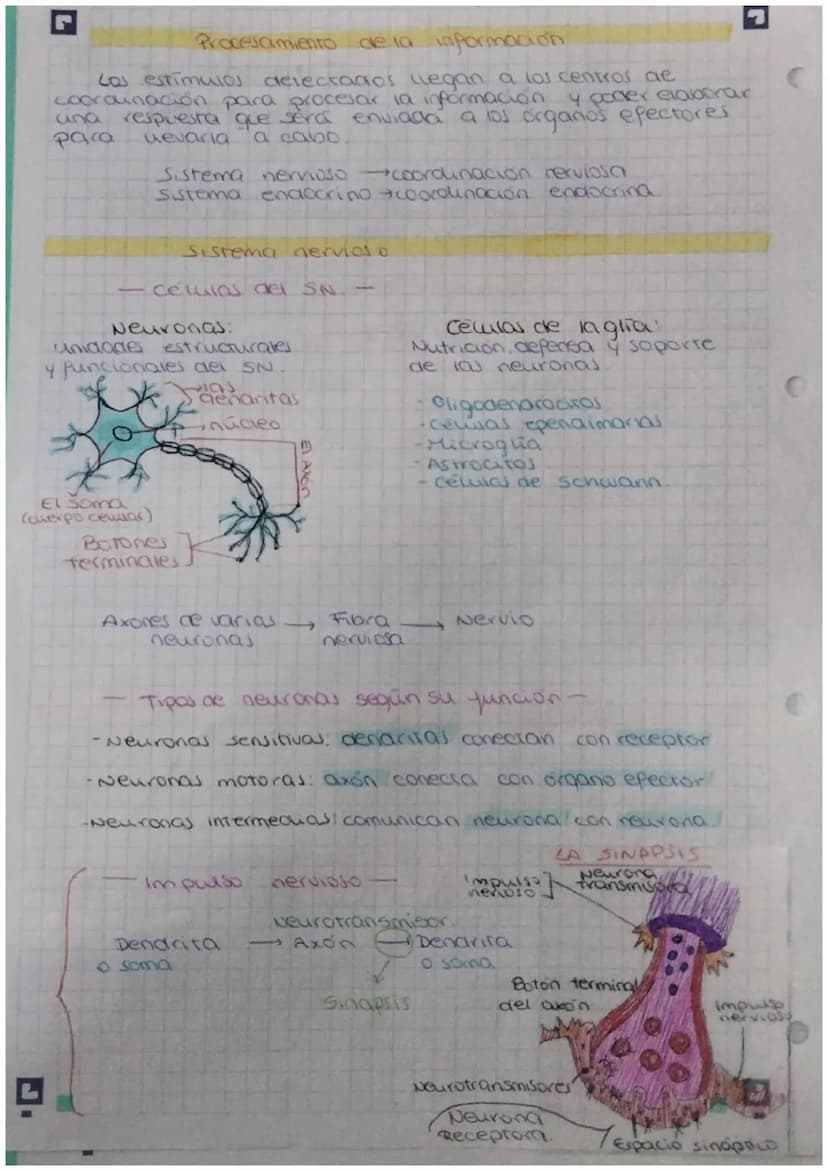 Procesamiento de la información
Los estímulos detectados llegan a los centros de
coordinación para procesar la información y poder elaborar
una respuesta que será enviada a los órganos efectores
para llevarla a cabo.
Sistema nervioso → coordinación nerviosa
Sistema endocrino → coordinación endocrina
Sistema nervioso
— Células del SN. —
Neuronas:
unidades estructurales
y funcionales del SN.
las
dendritas
núcleo
El Axón
El Soma
(cuerpo celular)
Botones
terminales
Células de la glía:
Nutrición, defensa y soporte
de las neuronas
- Oligodendrocitos
- Células ependimarias
- Microglía
- Astrocitos
- Células de Schwann
Axones de varias → Fibra → Nervio
neuronas nerviosa
— Tipos de neuronas según su función —
- Neuronas sensitivas: dendritas conectan con receptor
- Neuronas motoras: axón conecta con órgano efector
- Neuronas intermedias: comunican neurona con neurona
— Impulso nervioso —
Neurotransmisor
Dendrita → Axón → Dendrita
o soma o soma
Sinapsis
LA SINAPSIS
Impulso
nervioso
Neurona
transmisora
Botón terminal
del axón
Impulso
nervioso
Neurotransmisores
Neurona
Receptora
Espacio sináptico